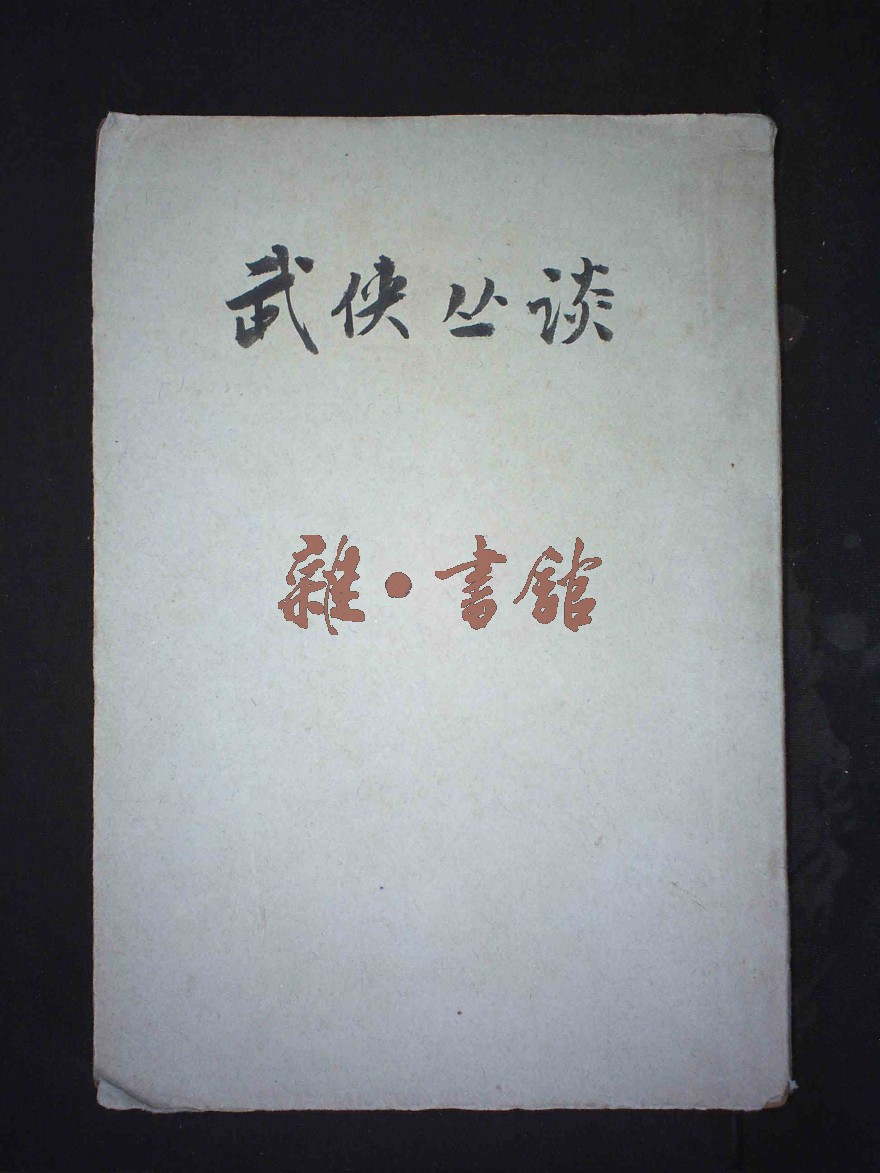 武侠丛谈
雜·書館